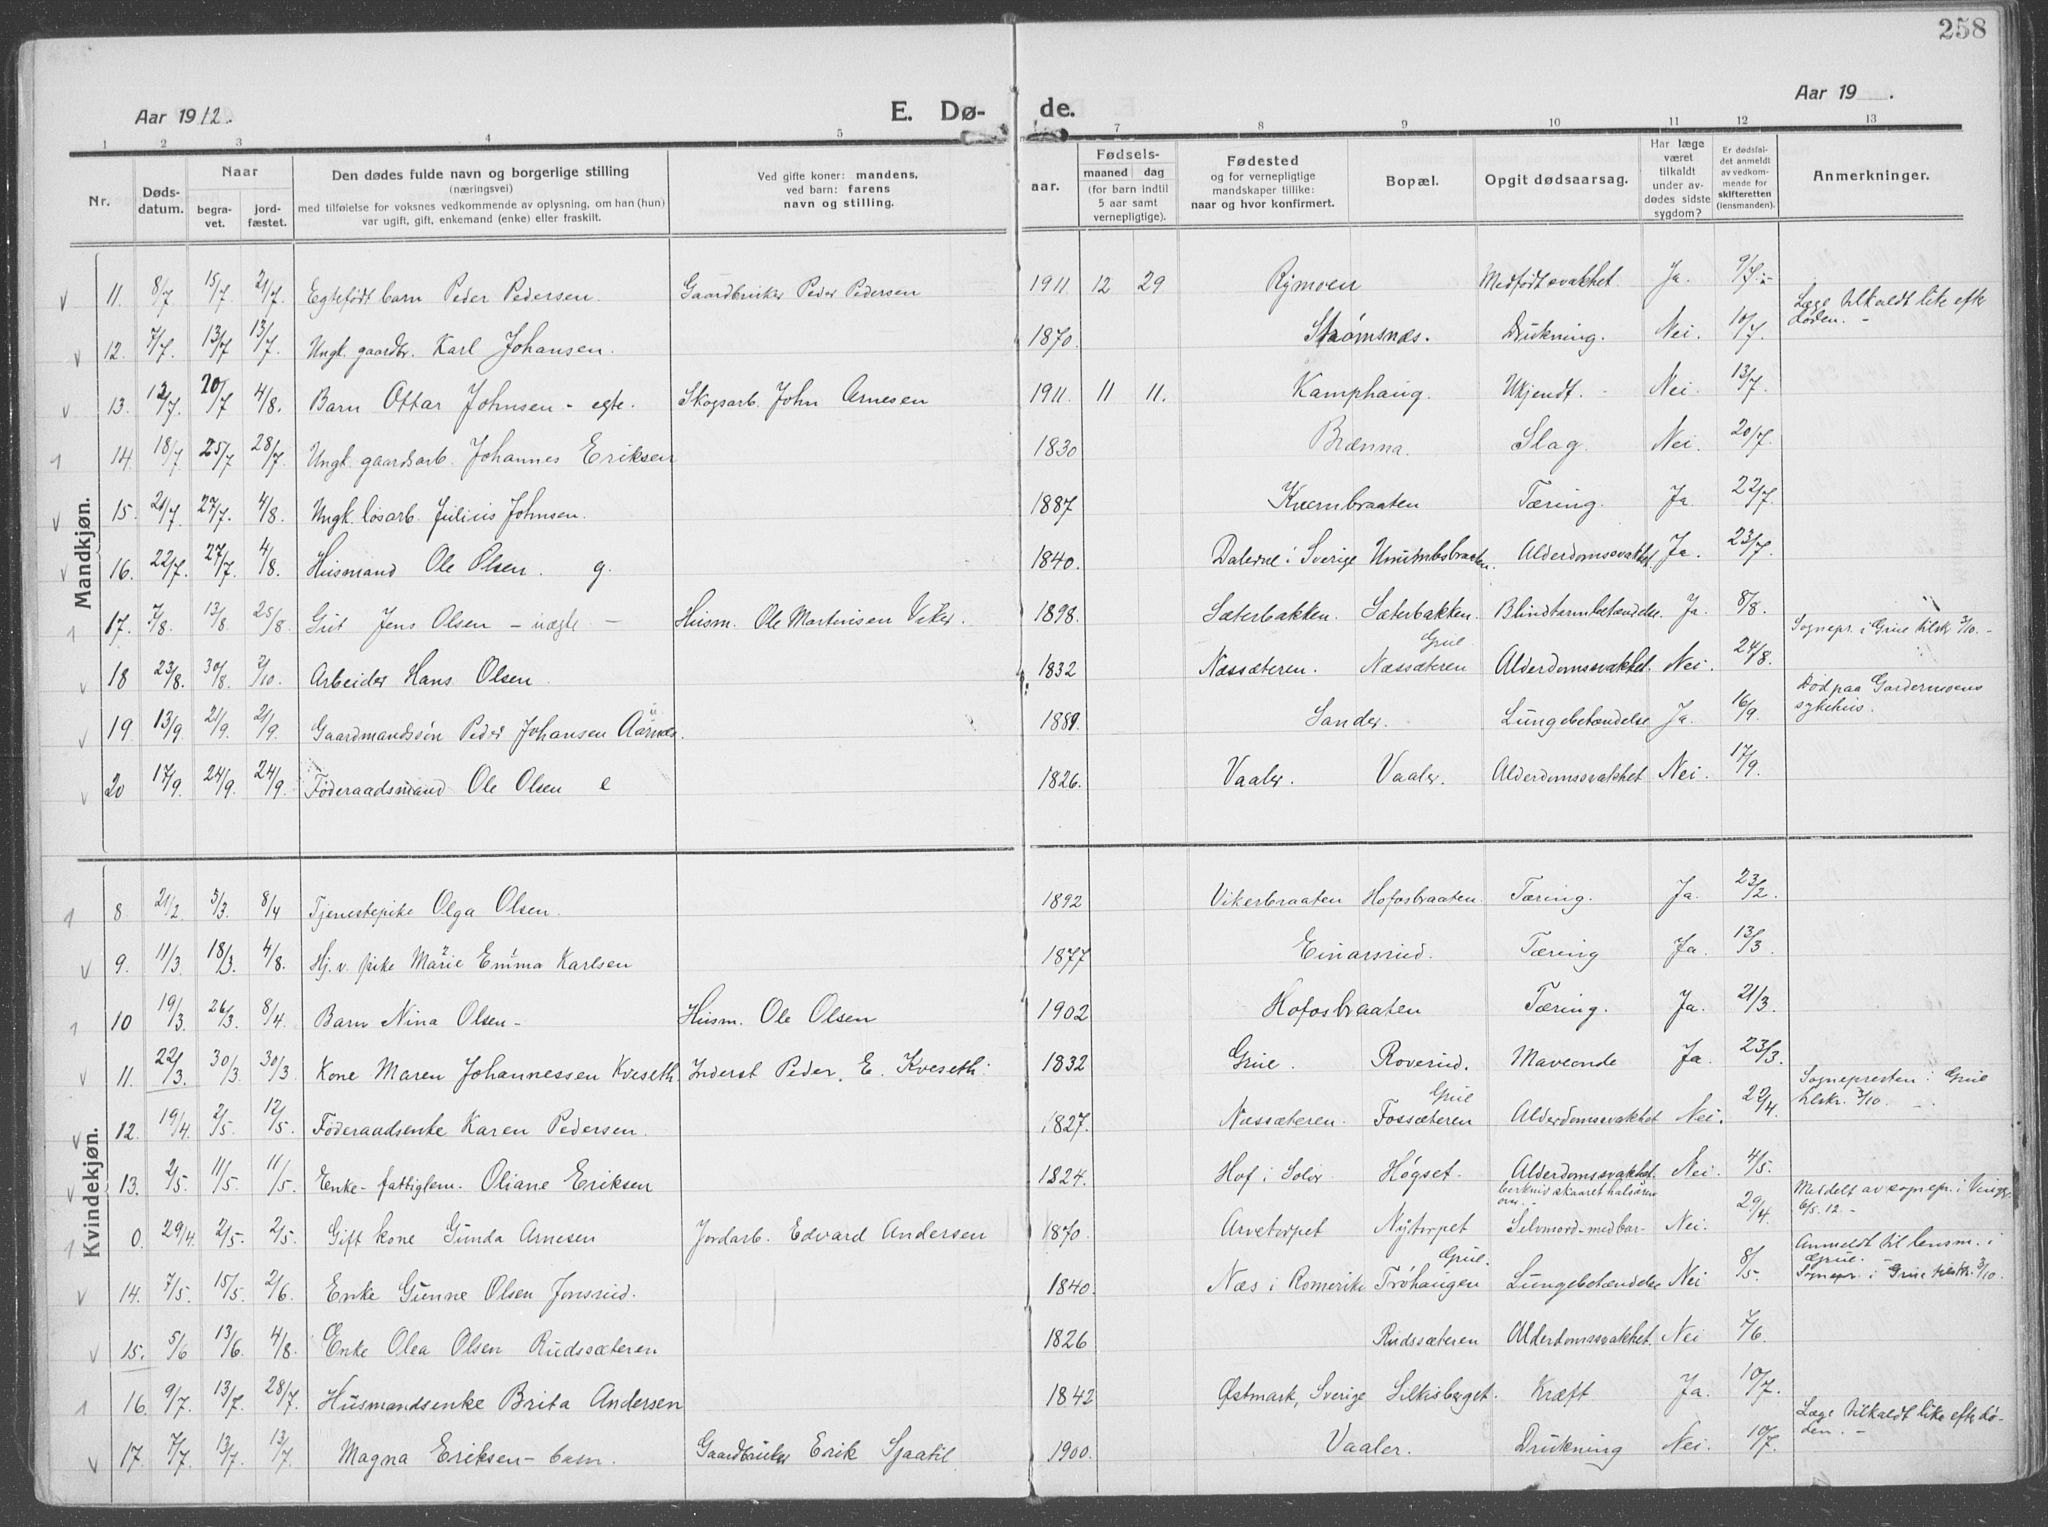 258
Aar 1912.
E. Dø-
de.
Aar 19 .
1 2 3 4 5 7 8 9 10 11 12 13
Nr.
Døds-
datum.
Naar
begra-
vet.
jord-
fæstet.
Den dødes fulde navn og borgerlige stilling
(næringsvei)
med tilføielse for voksnes vedkommende av oplysning, om han (hun)
var ugift, gift, enkemand (enke) eller fraskilt.
Ved gifte koner: mandens,
ved barn: farens
navn og stilling.
aar.
Fødsels-
maaned dag
(for barn indtil
5 aar samt
vernepligtige).
Fødested
og for vernepligtige
mandskaper tillike:
naar og hvor konfirmert.
Bopæl.
Opgit dødsaarsag.
Har læge
været
tilkaldt
under av-
dødes sidste
sygdom?
Er dødsfal-
det anmeldt
av vedkom-
mende for
skifteretten
(lensmanden).
Anmerkninger.
Mandkjøn.
11. 8/7 15/7 21/7. Egtefødt barn Peder Pedersen. Gaardbruker Peder Pedersen 1911 12 29 Rymoen Medfødt svakhet. Ja. 9/7.
12. 7/7. 13/7 13/7. Ungk. gaardbr. Karl Johansen. 1870. Strømsnæs. Drukning. Nei. 10/7. Læge tilkaldt like eftr
døden. -
13. 12/7. 20/7 4/8. Barn Ottar Johnsen - egte. Skogsarb. John Arnesen 1911. 11 11. Kamphaug. Ukjendt. - Nei. 13/7.
14. 18/7 25/7 28/7. Ungk. gaardsarb. Johannes Eriksen 1830 Brænna. Slag. Nei. 20/7.
15. 21/7. 27/7. 4/8. Ungk. løsarb. Julius Johnsen. 1887 Kvernbraaten Tæring. Ja 22/7.
16. 22/7. 27/7. 4/8. Husmand Ole Olsen. g. 1840. i Sverige Alderdomssvakhet. Ja. 23/7.
17. 7/8. 13/8 25/8. Gut Jens Olsen - uægte - Husm. Ole Martinisen Viker. 1898. Sæterbakken. Sæterbakken. Blindtarmbetændelse. Ja. 8/8.
18 23/8. 30/8. 2/10. Arbeider Hans Olsen. 1832 Næssæteren. Næssæteren Grue Alderdomssvakhet. Nei. 24/8. Sognepr. i Grue tilskr. 3/10. -
19. 13/9. 21/9. 21/9. Gaardmandssøn Peder Johansen Aarnæs. u. 1889. Sander. Lungebetændelse Ja. 16/9. Død paa Gardermoens
sykehus.
20 17/9. 24/9. 24/9. Føderaadsmand Ole Olsen e 1826. Vaaler. Vaaler. Alderdomssvakhet Nei. 17/9.
Kvindekjøn.
8. 21/2. 3/3. 8/4 Tjenestepike Olga Olsen. 1892 Vikerbraaten Hofosbraaten. Tæring. Ja. 23/2.
9. 11/3. 18/3. 4/8. Hj. v. pike Marie Emma Karlsen 1877 Einarsrud. Tæring Ja. 13/3.
10 19/3. 26/3. 8/4. Barn Nina Olsen - Husm. Ole Olsen 1902 Hofosbraaten Tæring. Ja. 21/3.
11. 22/3. 30/3. 30/3. Kone Maren Johannessen Kveseth Inderst Peder. E. Kveseth. 1832 Grue. Roverud. Maveonde Ja. 23/3.
12. 19/4. 2/5. 12/5. Føderaadsenke Karen Pedersen. 1827. Næssæteren. Fossæteren Grue Alderdomssvakhet Nei. 22/4. Sognepresten i Grue
tilskr. 3/10. -
13. 2/5. 11/5. 11/5. Enke - fattiglem. Oliane Eriksen 1824. Hof i Solør Høgset. Alderdomssvakhet. Nei. 4/5.
0. 29/4. 2/5. 2/5. Gift kone Gunda Arnesen Jordarb. Edvard Andersen 1870. Arvetorpet Nytorpet Selvmord - med bar-
berkniv skaaret halsen
over. - Nei. 29/4. Meddelt av sognepr. i Vinger
6/5. 12. -
14. 7/5. 15/5. 2/6. Enke Gunne Olsen Jonsrud. 1840. Næs i Romerike Trøhaugen Grue. Lungebetændelse Nei 8/5. Anmeldt til lensm. i
Grue.
Sognepr. i Grue tilskr. 3/10.
15. 5/6 13/6. 4/8. Enke Olea Olsen Rudssæteren 1826 Rudssæteren Alderdomssvakhet. Nei 7/6.
16. 9/7. 13/7. 28/7. Husmandsenke Brita Andersen 1842 Østmark, Sverige Silkisberget. Kræft Ja. 10/7.
17. 7/7. 13/7. 13/7. Magna Eriksen - barn. Gaardbruker Erik Spaatil 1900. Vaaler. Drukning Nei. 10/7. Læge tilkaldt like eftr dø-
den. -